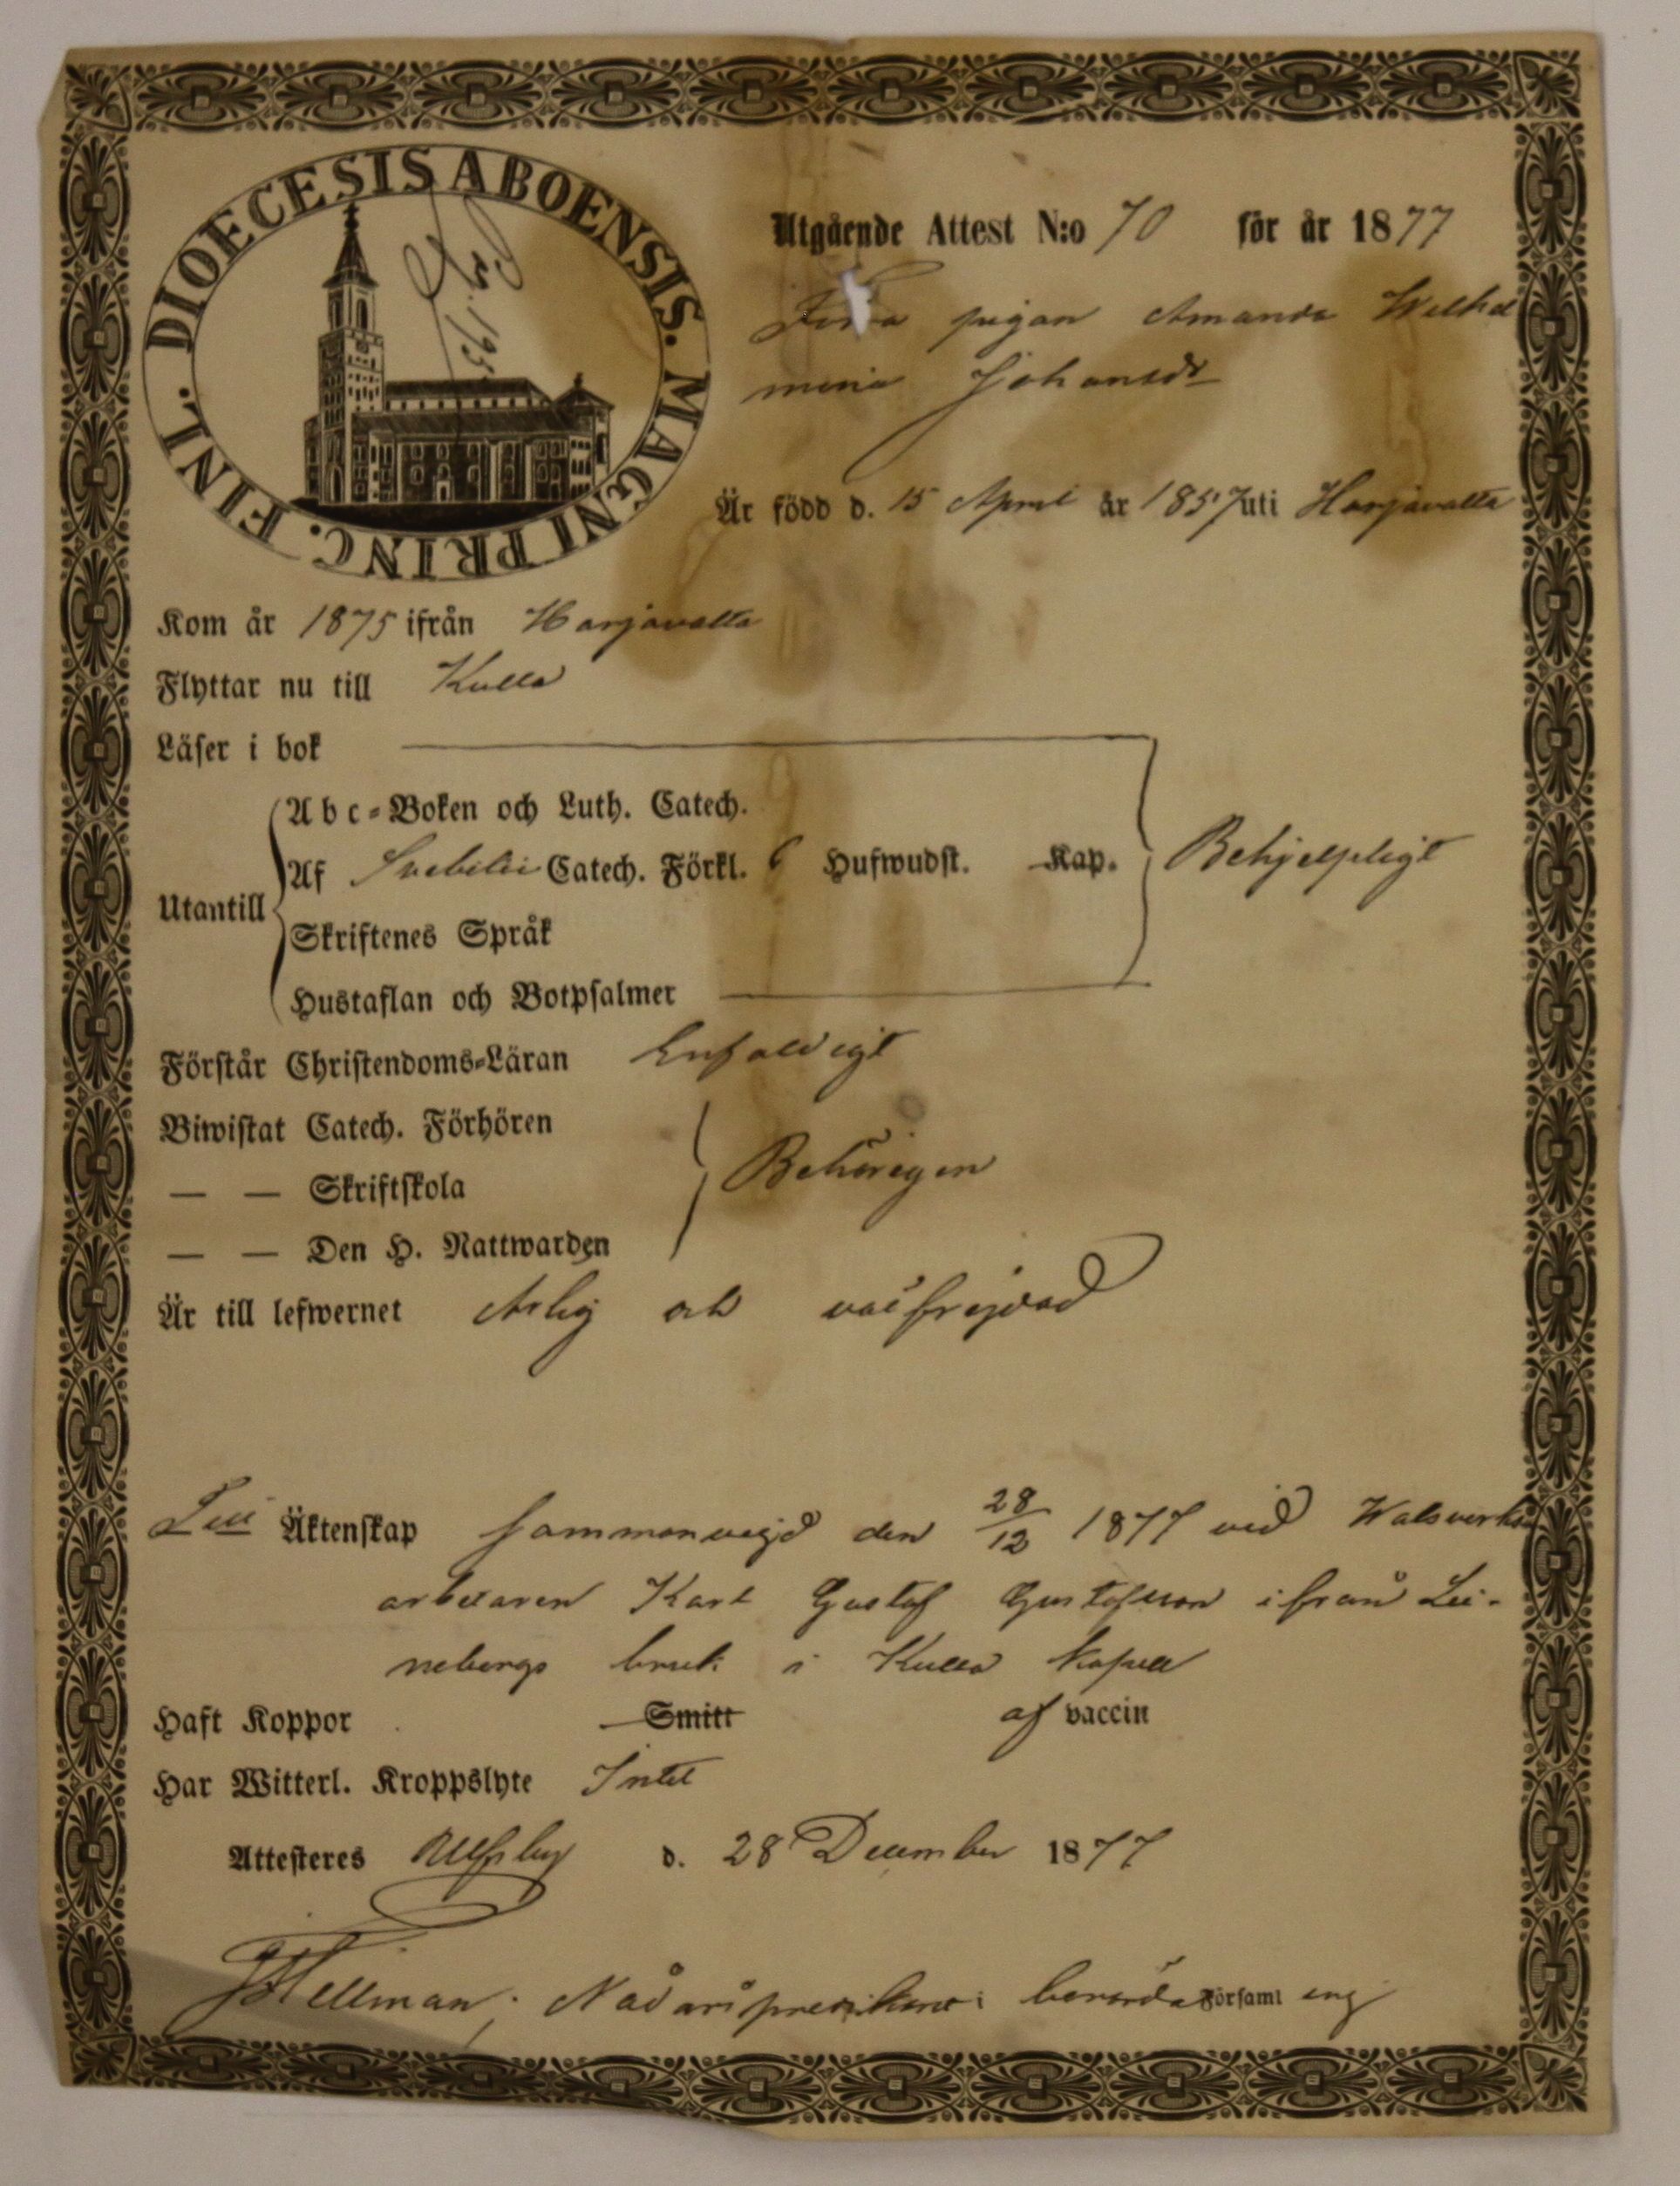 DIOECESIS ABOENSIS. MAGNI PRINC. FINL.
Pag. 195.
Utgående Attest N:o 70 för år 1877
pigan Amanda Wilhel
mina Johansdr
Är född d. 15 April år 1857 uti Harjavalta
Kom år 1875 ifrån Harjavalta
Flyttar nu till Kulla
Läser i bok
Abc-Boken och Luth. Catech.
Af Svebilii Catech. Förkl. 6 Hufwudst. Kap. Behjelpligt
Utantill
Skriftenes Språk
Hustaflan och Botpsalmer
Förstår Christendoms-Läran Enfaldigt
Biwistat Catech. Förhören
— — Skriftskola Behörigen
— — Den H. Nattwarden
Är till lefwernet Ärlig och välfrejdad
Till Äktenskap sammanvigd den 28/12 1877 vid Walsverks
arbetaren Karl Gustaf Gustafsson ifrån Lei-
nebergs bruk i Kulla kapell
Haft Koppor Smitt af vaccin
Har Witterl. Kroppslyte Intet
Attesteres Ulfsby d. 28 December 1877
Hellman, Nådårspredikant i berörda Församl ing